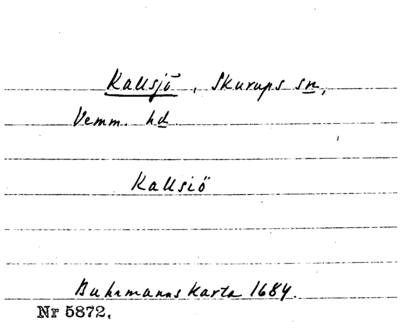 Kallsjö, Skurups sn,
Vemm. hd
Kallsiö
Buhrmanns Karta 1684.
Nr 5872,